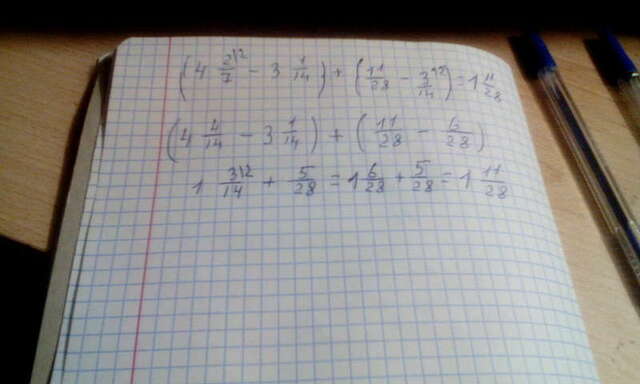 (4 2/7 |2 - 3 1/14) + (11/28 - 3/14 |2) = 1 11/28
(4 4/14 - 3 1/14) + (11/28 - 6/28)
1 3/14 |2 + 5/28 = 1 6/28 + 5/28 = 1 11/28